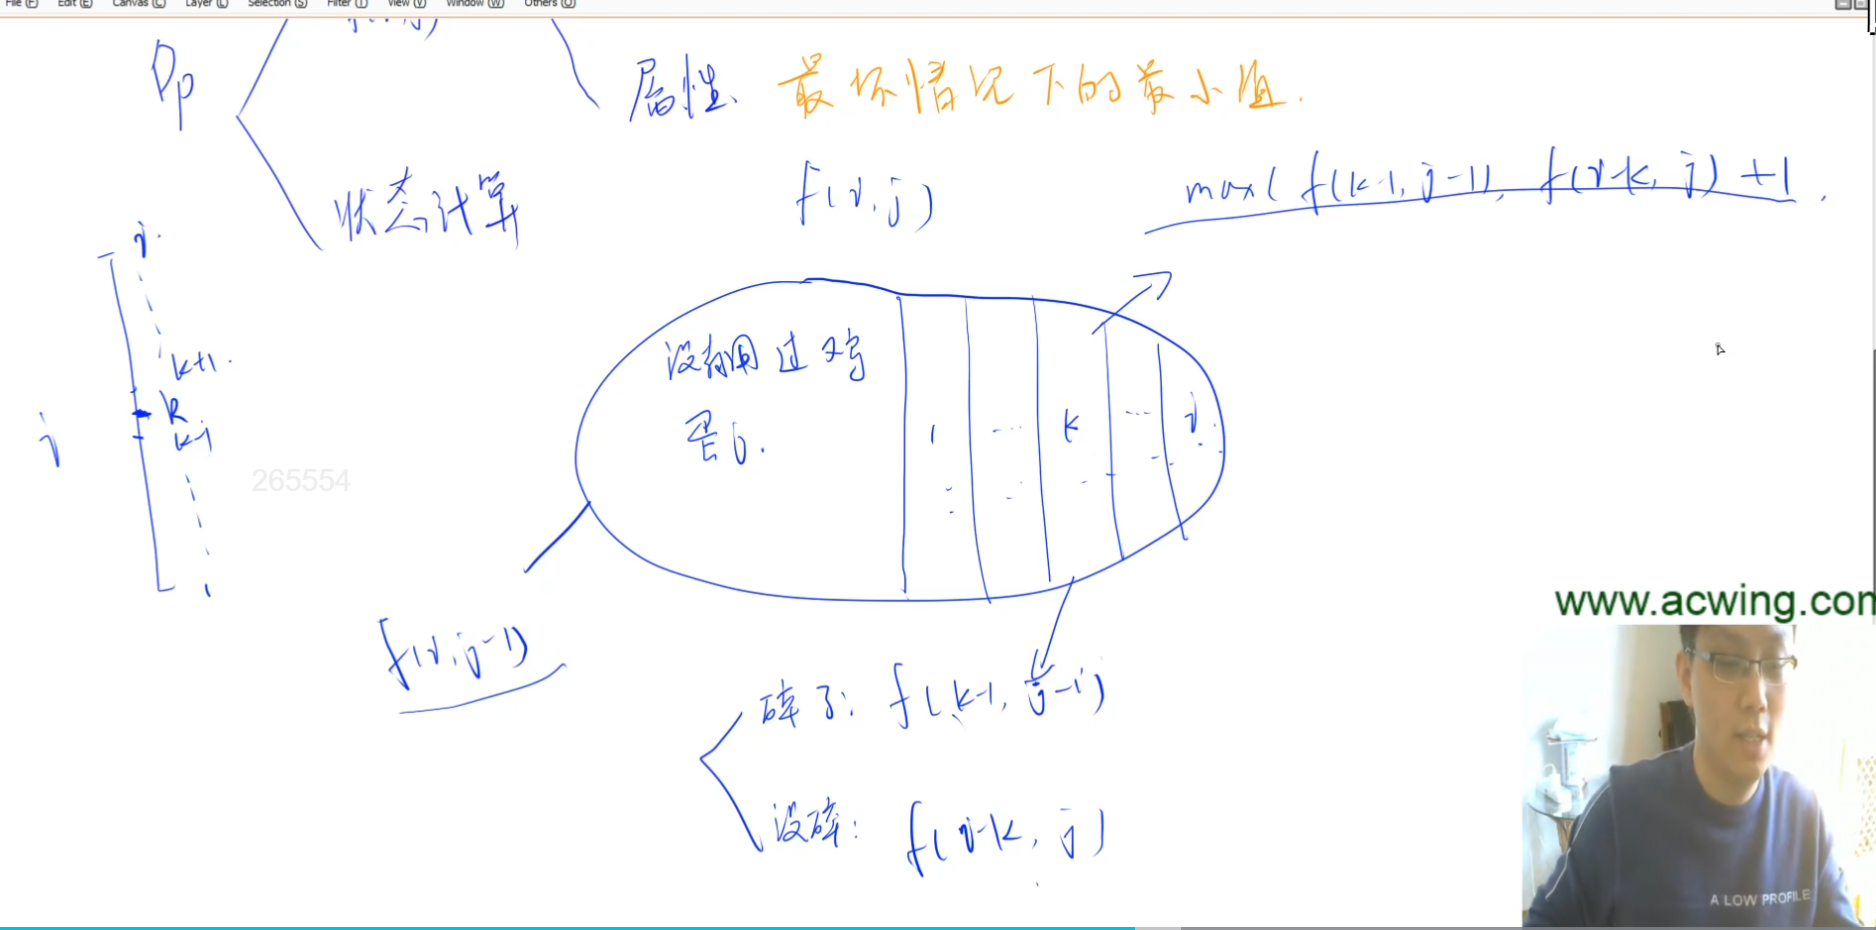 File (F) Edit (E) Canvas (C) Layer (L) Selection (S) Filter (I) View (V) Window (W) Others (O)
Dp
属性、 最坏情况下的最小值.
状态计算
f(i, j)
max( f(k-1, j-1), f(i-k, j) +1 .
i
k+1
k
k-1
j
1
265554
没有用过鸡
蛋j.
1 ... k ... i
f(i, j-1)
碎了: f(k-1, j-1)
没碎: f(i-k, j)
www.acwing.com
A LOW PROFILE